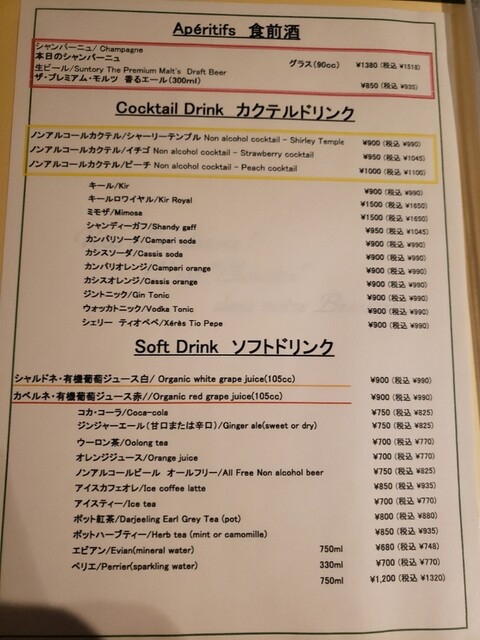 Apéritifs 食前酒
シャンパーニュ/ Champagne
本日のシャンパーニュ グラス(90cc) ¥1380 (税込 ¥1518)
生ビール/Suntory The Premium Malt's Draft Beer
ザ・プレミアム・モルツ 香るエール(300ml) ¥850 (税込 ¥935)
Cocktail Drink カクテルドリンク
ノンアルコールカクテル/シャーリーテンプル Non alcohol cocktail - Shirley Temple ¥900 (税込 ¥990)
ノンアルコールカクテル/イチゴ Non alcohol cocktail - Strawberry cocktail ¥950 (税込 ¥1045)
ノンアルコールカクテル/ピーチ Non alcohol cocktail - Peach cocktail ¥1000 (税込 ¥1100)
キール/Kir ¥900 (税込 ¥990)
キールロワイヤル/Kir Royal ¥1500 (税込 ¥1650)
ミモザ/Mimosa ¥1500 (税込 ¥1650)
シャンディーガフ/Shandy gaff ¥950 (税込 ¥1045)
カンパリソーダ/Campari soda ¥900 (税込 ¥990)
カシスソーダ/Cassis soda ¥900 (税込 ¥990)
カンパリオレンジ/Campari orange ¥900 (税込 ¥990)
カシスオレンジ/Cassis orange ¥900 (税込 ¥990)
ジントニック/Gin Tonic ¥900 (税込 ¥990)
ウォッカトニック/Vodka Tonic ¥900 (税込 ¥990)
シェリー ティオペペ/Xérès Tio Pepe ¥900 (税込 ¥990)
Soft Drink ソフトドリンク
シャルドネ・有機葡萄ジュース白/ Organic white grape juice(105cc) ¥900 (税込 ¥990)
カベルネ・有機葡萄ジュース赤//Organic red grape juice(105cc) ¥900 (税込 ¥990)
コカ・コーラ/Coca-cola ¥750 (税込 ¥825)
ジンジャーエール(甘口または辛口)/Ginger ale(sweet or dry) ¥750 (税込 ¥825)
ウーロン茶/Oolong tea ¥700 (税込 ¥770)
オレンジジュース/Orange juice ¥700 (税込 ¥770)
ノンアルコールビール オールフリー/All Free Non alcohol beer ¥750 (税込 ¥825)
アイスカフェオレ/Ice coffee latte ¥850 (税込 ¥935)
アイスティー/Ice tea ¥700 (税込 ¥770)
ポット紅茶/Darjeeling Earl Grey Tea (pot) ¥800 (税込 ¥880)
ポットハーブティー/Herb tea (mint or camomille) ¥850 (税込 ¥935)
エビアン/Evian(mineral water) 750ml ¥680 (税込 ¥748)
ペリエ/Perrier(sparkling water) 330ml ¥700 (税込 ¥770)
750ml ¥1,200 (税込 ¥1320)